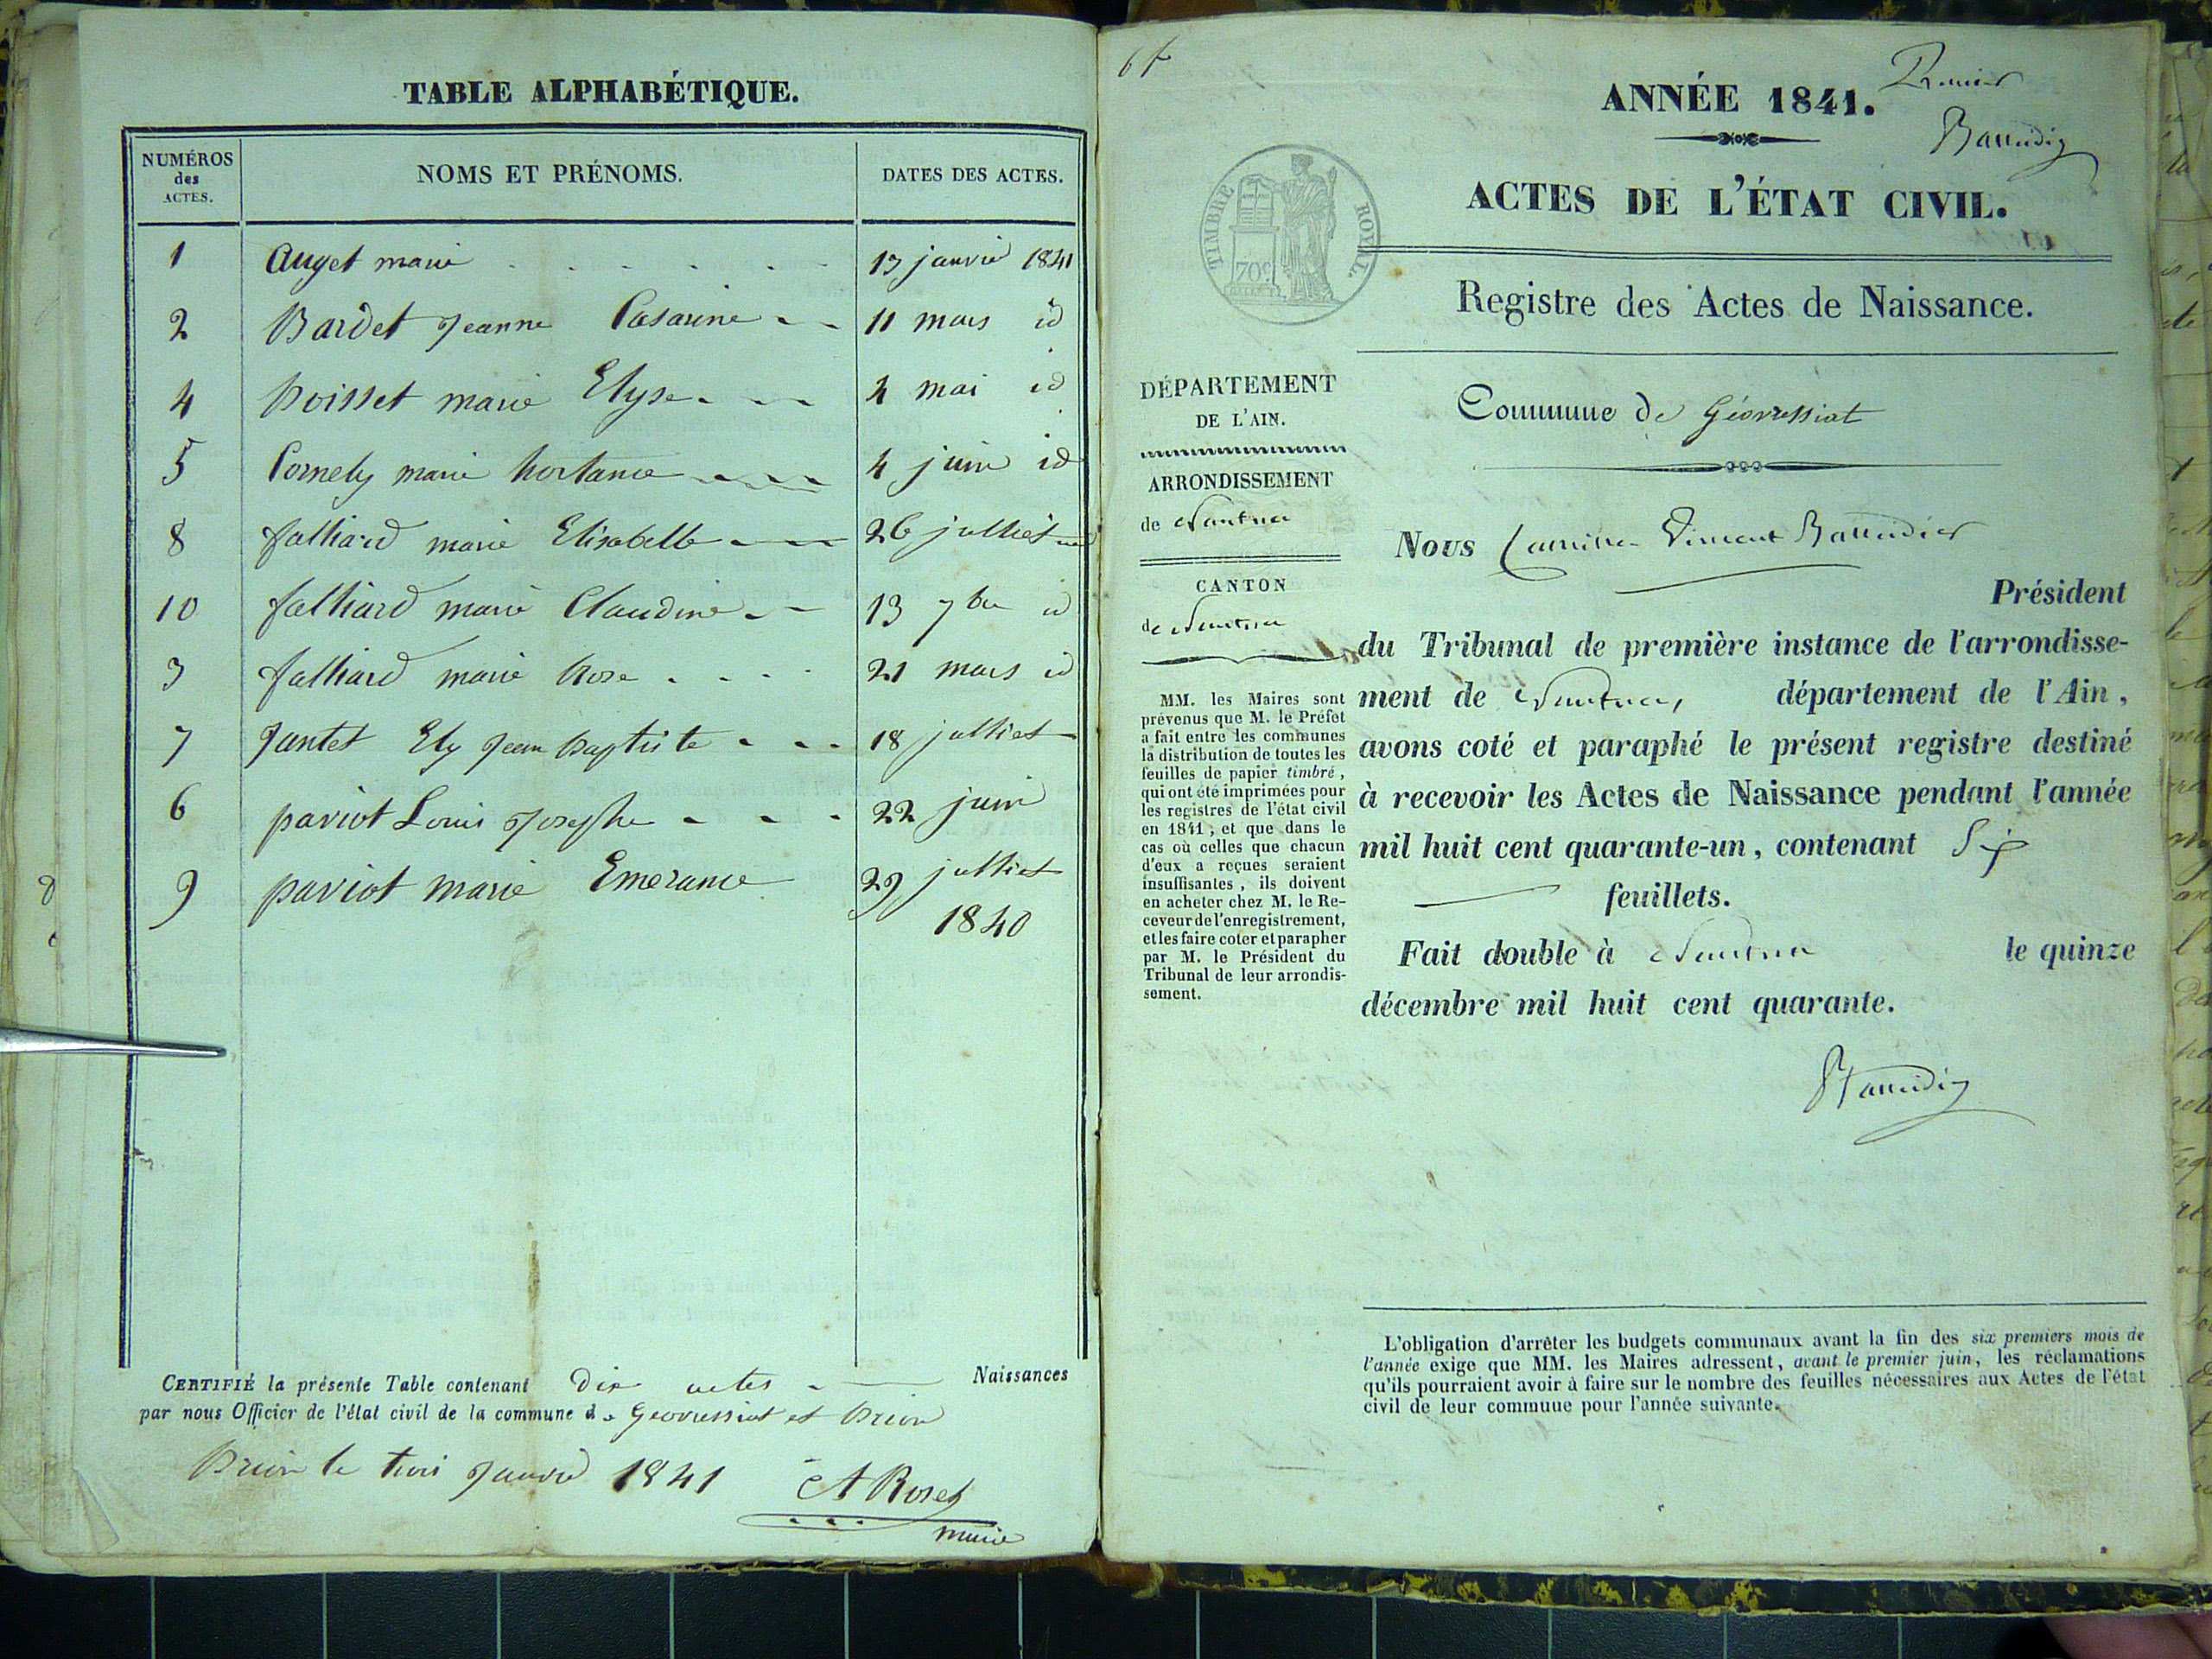 TABLE ALPHABÉTIQUE.
NUMÉROS des ACTES. NOMS ET PRÉNOMS. DATES DES ACTES.
1 Auget marie 1841
2 Bardet Jeanne 11 mars id
4 Boisset marie Elyse 4 mai id
5 Cornely marie hortance 4 juin id
8 falliard marie Elisabelle 26 julliet
10 falliard marie Claudine 13 7bre id
3 falliard marie Rose 21 mars id
7 Jantet Ely Jean Baptiste 18 julliet
6 paviot Louis Josephe 22 juin
9 paviot marie Emerance 29 julliet
1840
CERTIFIÉ la présente Table contenant Dix actes Naissances
par nous Officier de l'état civil de la commune de Géovressiat et Brion
Brion le trois Janvié 1841
A Roset
maire
ANNÉE 1841.
Premier
ACTES DE L'ÉTAT CIVIL.
TIMBRE ROYAL.
70c
Registre des Actes de Naissance.
DÉPARTEMENT
DE L'AIN.
ARRONDISSEMENT
de Nantua
CANTON
de Nantua
MM. les Maires sont
prévenus que M. le Préfet
a fait entre les communes
la distribution de toutes les
feuilles de papier timbré,
qui ont été imprimées pour
les registres de l'état civil
en 1841; et que dans le
cas où celles que chacun
d'eux a reçues seraient
insuffisantes, ils doivent
en acheter chez M. le Re-
ceveur de l'enregistrement,
et les faire coter et parapher
par M. le Président du
Tribunal de leur arrondis-
sement.
Commune de Géovressiat
Nous Camille Vincent
Président
du Tribunal de première instance de l'arrondisse-
ment de Nantua, département de l'Ain,
avons coté et paraphé le présent registre destiné
à recevoir les Actes de Naissance pendant l'année
mil huit cent quarante-un, contenant Six
feuillets.
Fait double à Nantua le quinze
décembre mil huit cent quarante.
L'obligation d'arrêter les budgets communaux avant la fin des six premiers mois de
l'année exige que MM. les Maires adressent, avant le premier juin, les réclamations
qu'ils pourraient avoir à faire sur le nombre des feuilles nécessaires aux Actes de l'état
civil de leur commune pour l'année suivante.